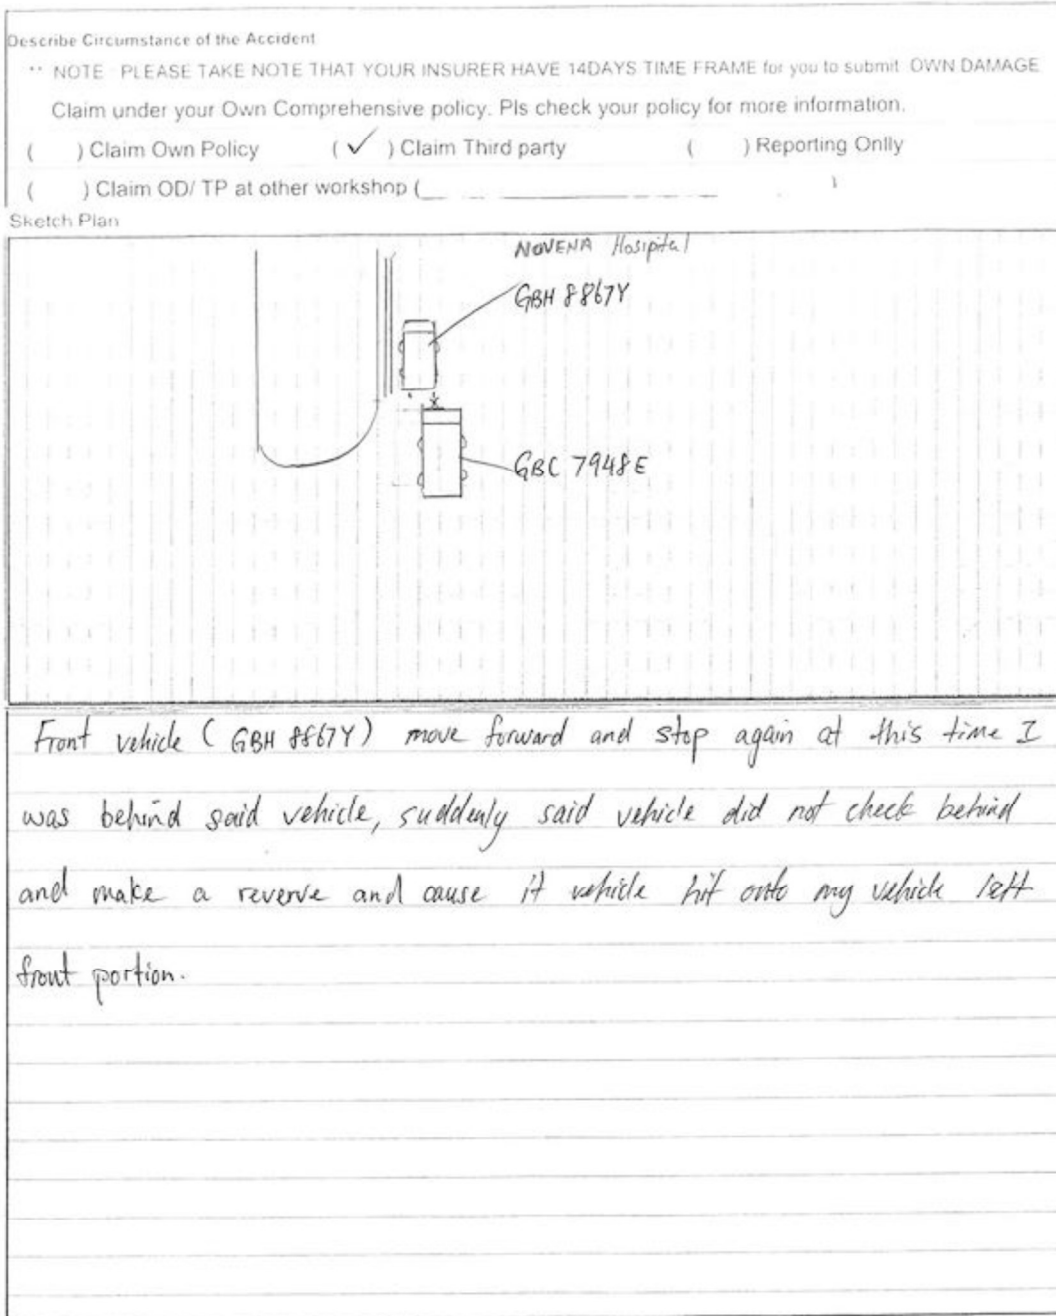 Describe Circumstance of the Accident
** NOTE PLEASE TAKE NOTE THAT YOUR INSURER HAVE 14DAYS TIME FRAME for you to submit OWN DAMAGE
Claim under your Own Comprehensive policy. Pls check your policy for more information.
( ) Claim Own Policy ( ✓ ) Claim Third party ( ) Reporting Onlly
( ) Claim OD/ TP at other workshop (____________________ )
Sketch Plan
NOVENA Hosipital
GBH 8867Y
GBC 7948E
Front vehicle ( GBH 8867Y ) move forward and stop again at this time I
was behind said vehicle, suddenly said vehicle did not check behind
and make a reverve and cause it vehicle hit onto my vehicle left
front portion.